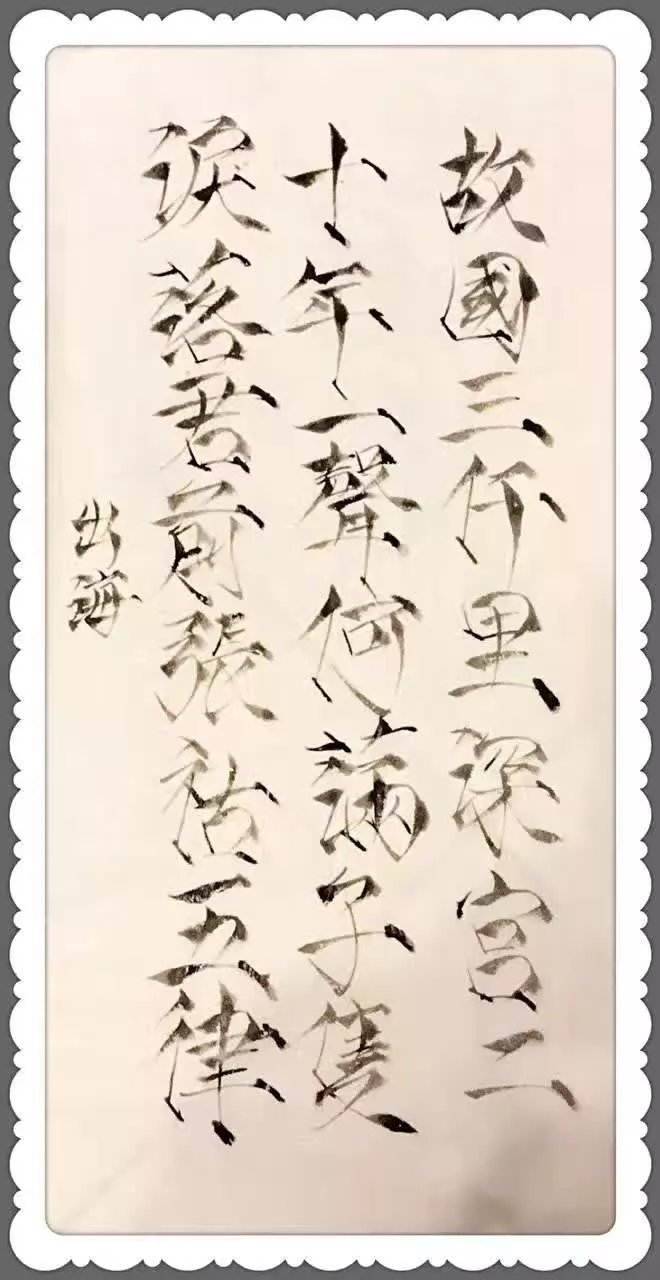 故國三仟里深宮二
十年一聲何滿子隻
淚落君前張祜五律
出海